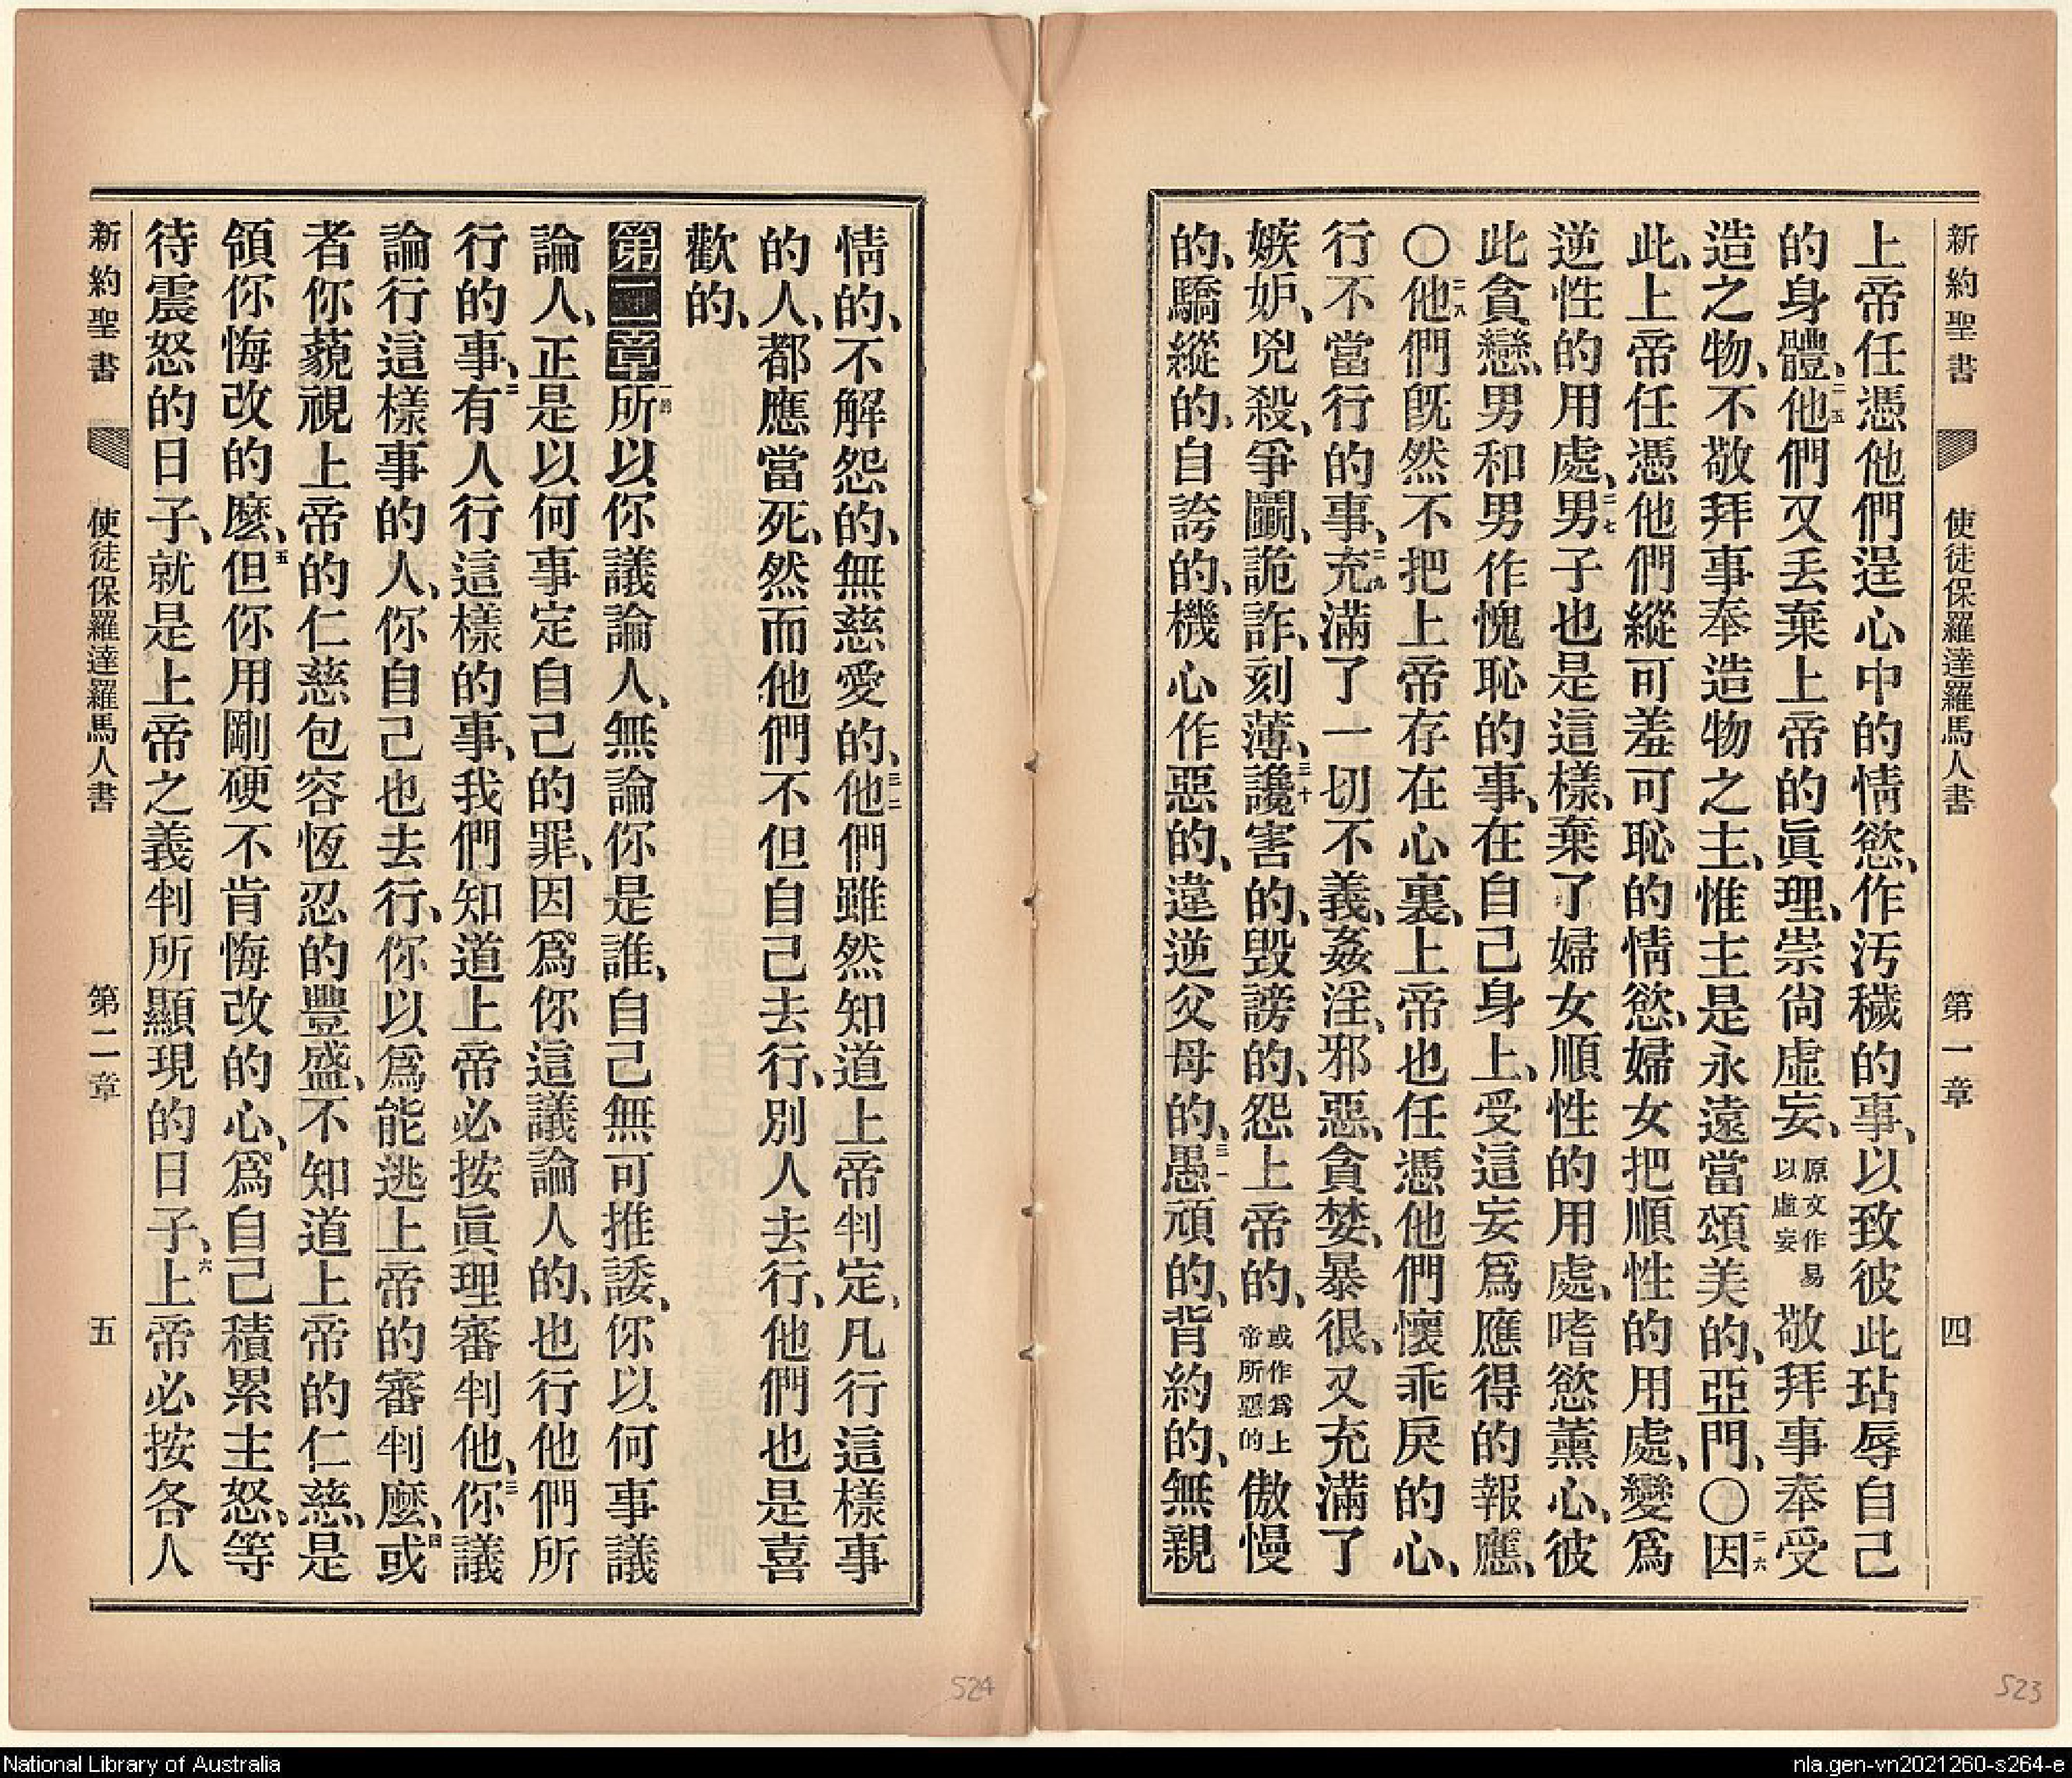 新約聖書 使徒保羅達羅馬人書 第一章 四
上帝任憑他們逞心中的情慾、作汚穢的事、以致彼此玷辱自己
的身體、二五他們又丢棄上帝的眞理、崇尙虛妄、原文作易以虛妄敬拜事奉受
造之物、不敬拜事奉造物之主、惟主是永遠當頌美的、亞門、〇二六因
此、上帝任憑他們縱可羞可恥的情慾、婦女把順性的用處、變爲
逆性的用處、二七男子也是這樣、棄了婦女順性的用處、嗜慾薰心、彼
此貪戀、男和男作愧恥的事、在自己身上、受這妄爲應得的報應、
〇二八他們旣然不把上帝存在心裏、上帝也任憑他們懷乖戾的心、
行不當行的事、二九充滿了一切不義、姦淫、邪惡、貪婪、暴很、又充滿了
嫉妒、兇殺、爭鬭、詭詐、刻薄、三十讒害的、毀謗的、怨上帝的、或作爲上帝所惡的傲慢
的、驕縱的、自誇的、機心作惡的、違逆父母的、三一愚頑的、背約的、無親
情的、不解怨的、無慈愛的、三二他們雖然知道上帝判定、凡行這樣事
的人、都應當死、然而他們不但自己去行、別人去行、他們也是喜
歡的、
第二章一節所以你議論人、無論你是誰、自己無可推諉、你以何事議
論人、正是以何事定自己的罪、因爲你這議論人的、也行他們所
行的事、二有人行這樣的事、我們知道上帝必按眞理審判他、三你議
論行這樣事的人、你自己也去行、你以爲能逃上帝的審判麽、四或
者你藐視上帝的仁慈包容恆忍的豐盛、不知道上帝的仁慈、是
領你悔改的麽、五但你用剛硬不肯悔改的心、爲自己積累主怒、等
待震怒的日子、就是上帝之義判所顯現的日子、六上帝必按各人
新約聖書 使徒保羅達羅馬人書 第二章 五
524
523
National Library of Australia
nla.gen-vn2021260-s264-e